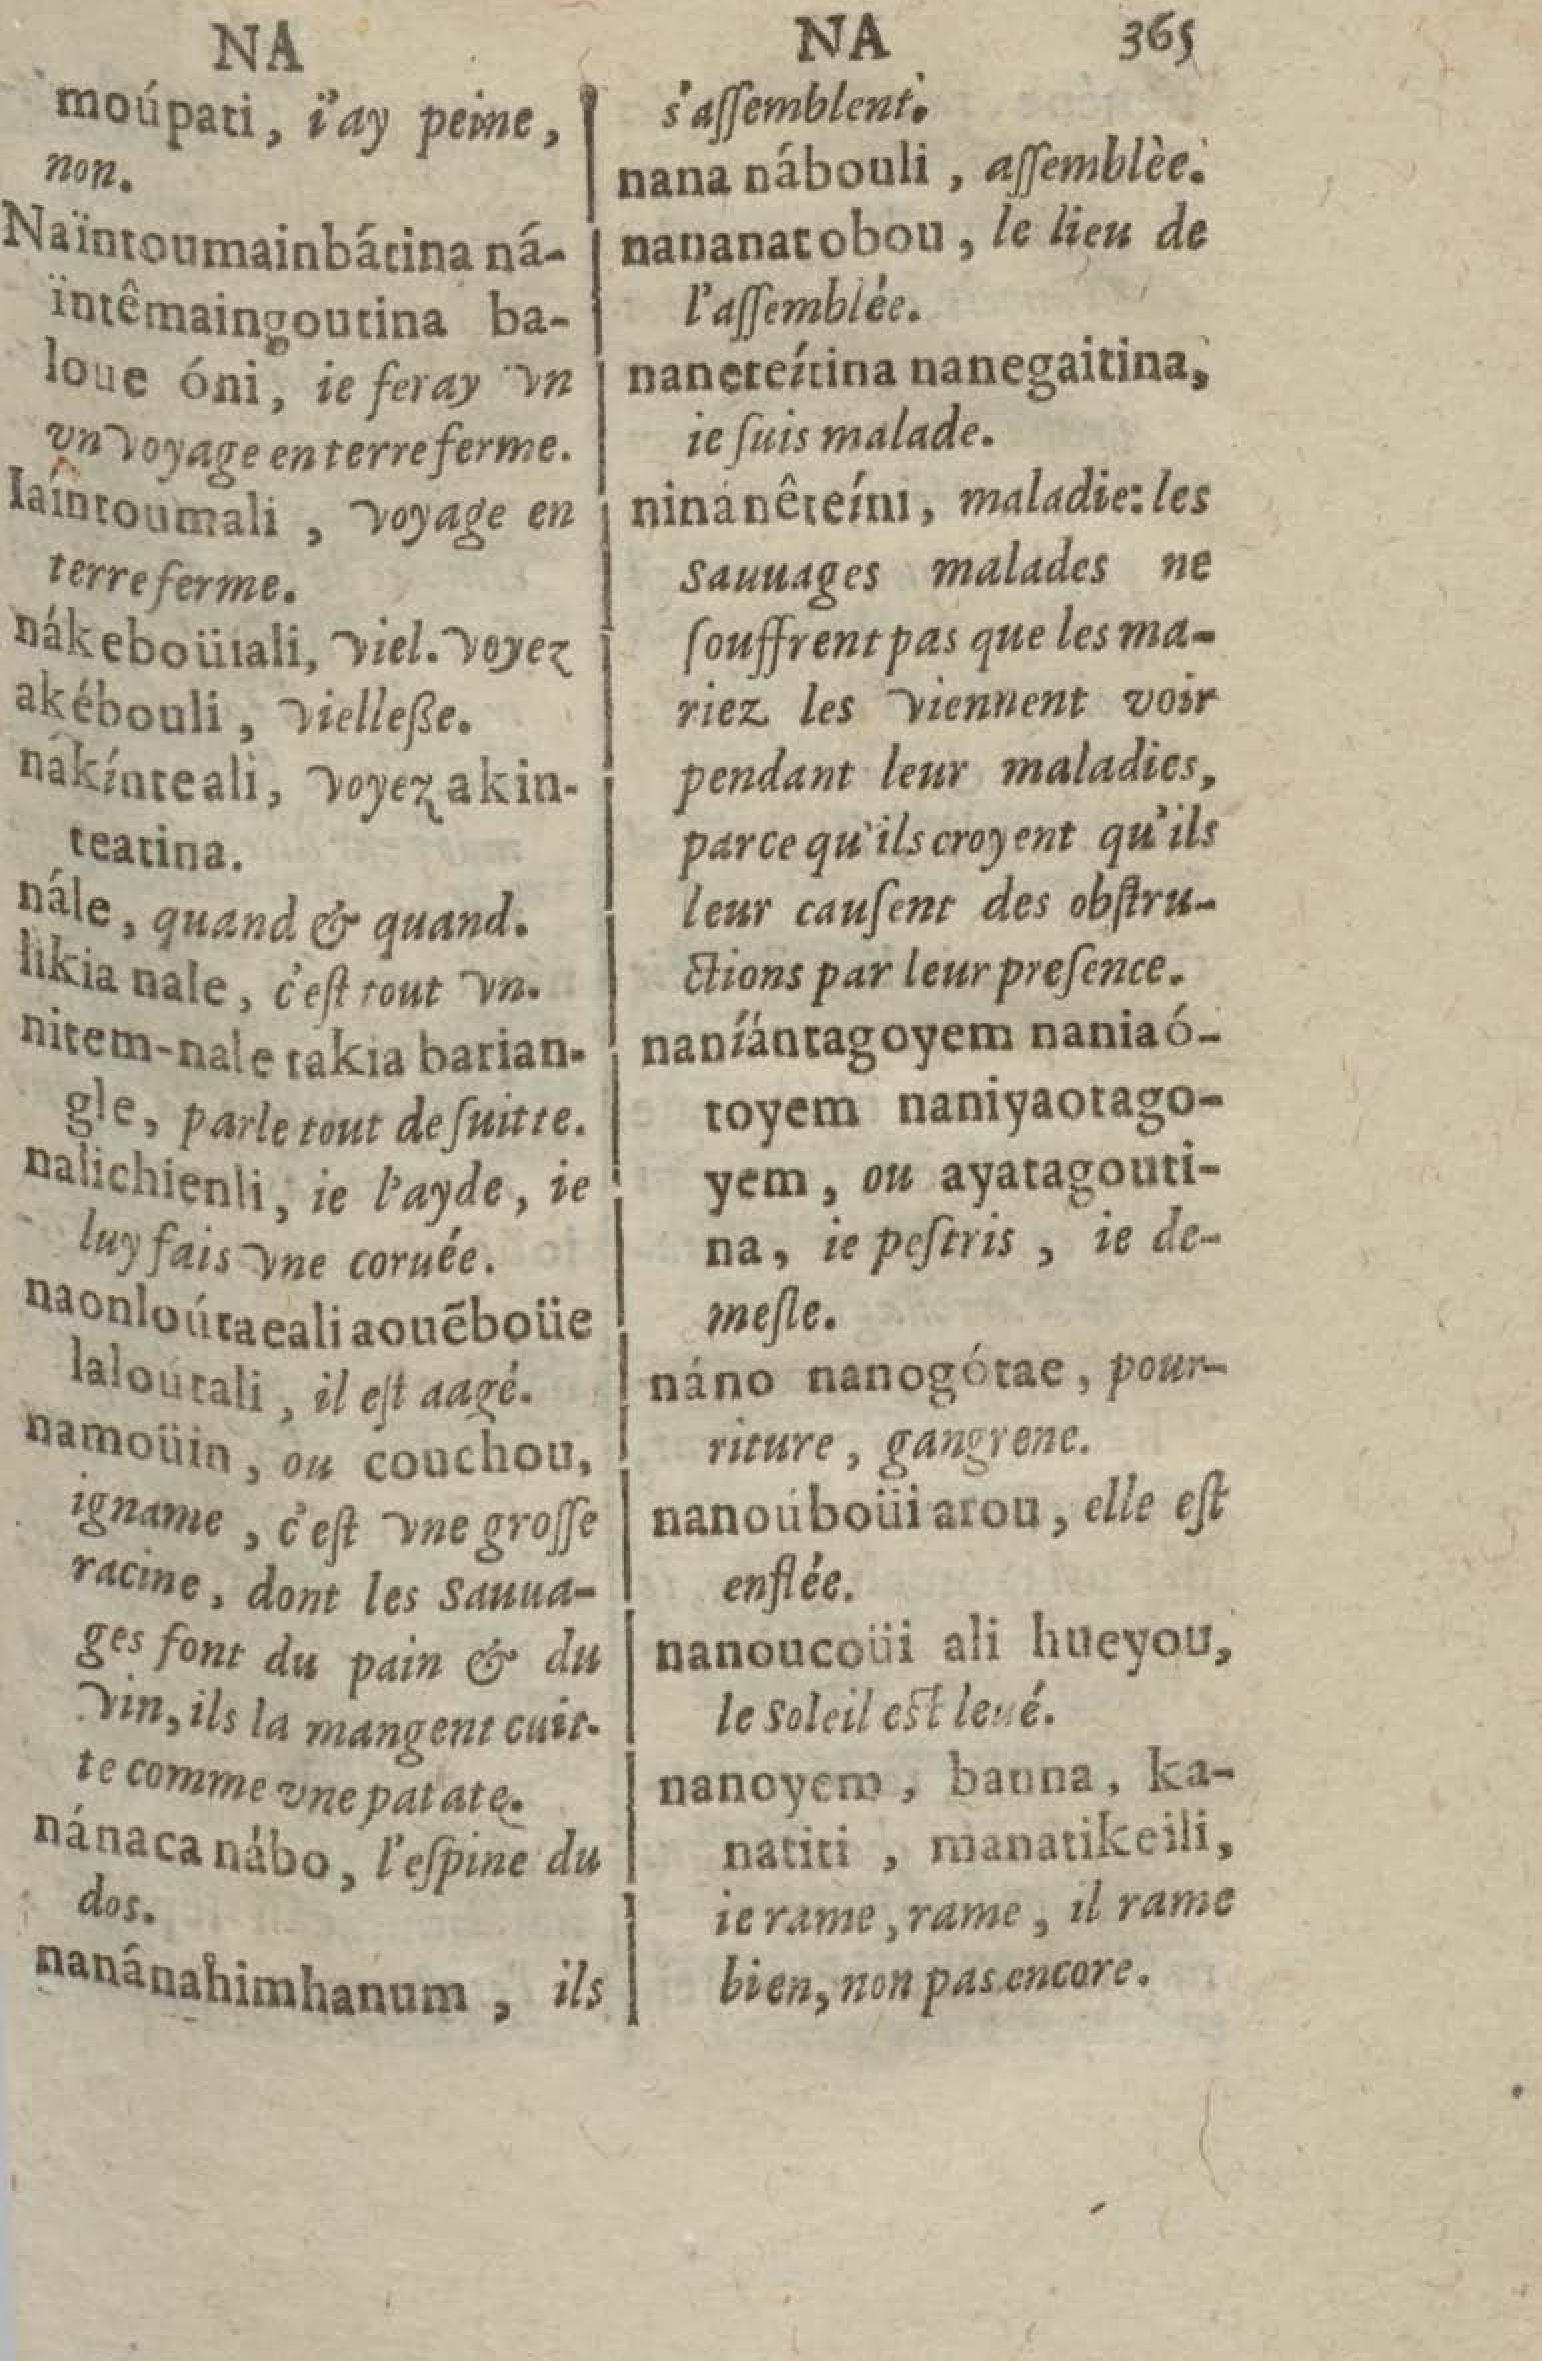 NA
moúpati, i'ay peine,
non.
Naïntoumainbátina ná-
ïntêmaingoutina ba-
loue óni, ie feray vn
vn voyage en terre ferme.
Iaíntoumali, voyage en
terre ferme.
nákeboüiali, viel. voyez
akébouli, vielleße.
nákínteali, voyez akin-
teatina.
nále, quand & quand.
likia nale, c'eſt tout vn.
nitem-nale takia barian-
gle, parle tout de ſuitte.
nalichienli, ie l'ayde, ie
luy fais vne coruée.
naonloútaeali aouẽboüe
laloútali, il eſt aagé.
namoüin, ou couchou,
igname, c'eſt vne groſſe
racine, dont les Sauua-
ges font du pain & du
vin, ils la mangent cuit-
te comme vne patate.
nánaca nábo, l'eſpine du
dos.
nanánahimhanum, ils
NA 365
s'aſſemblent.
nana nábouli, aſſemblèe.
nananatobou, le lieu de
l'aſſemblée.
naneteítina nanegaitina,
ie ſuis malade.
ninánêteíni, maladie: les
Sauuages malades ne
ſouffrent pas que les ma-
riez les viennent voir
pendant leur maladies,
parce qu'ils croyent qu'ils
leur cauſent des obſtru-
ctions par leur preſence.
naníántagoyem naniaó-
toyem naniyaotago-
yem, ou ayatagouti-
na, ie peſtris, ie de-
meſle.
náno nanogótae, pour-
riture, gangrene.
nanoúboüi arou, elle eſt
enflée.
nanoucoüi ali hueyou,
le Soleil eſt leué.
nanoyem, banna, ka-
natiti, manatikeili,
ie rame, rame, il rame
bien, non pas encore.